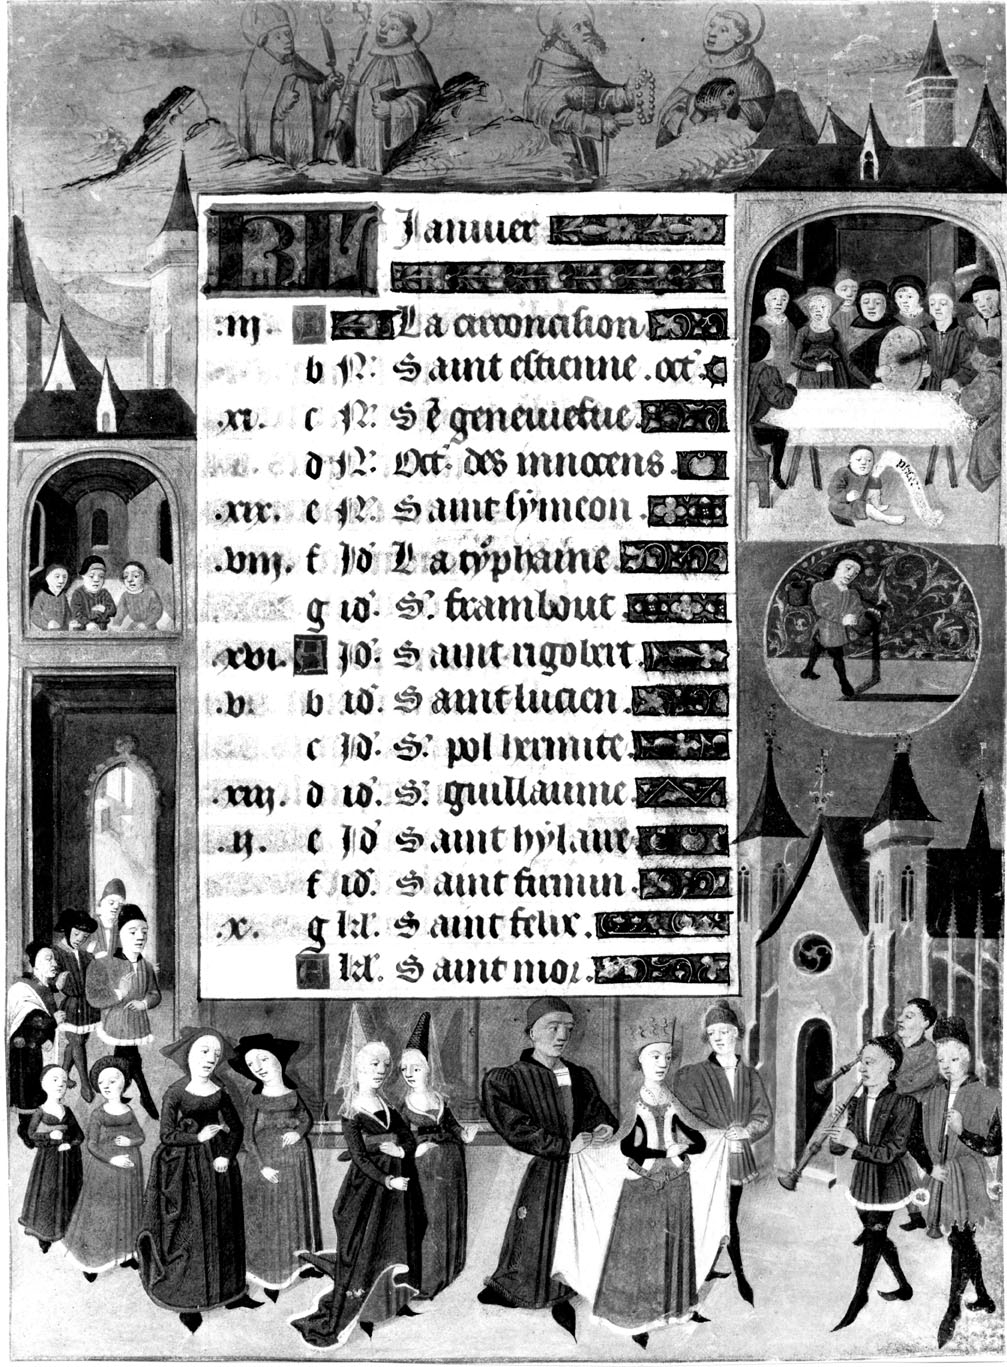 KL Januier
.iij. A La circoncision
b N. Saint estienne .oct'.
.xi. c N. Se geneuiefue.
d N. Oct'. des innocens
.xix. e N. Saint symeon
.viij. f Id' La typhaine
g id'. S'. frambout
.xvi. A Id'. Saint rigobert.
.v. b id'. Saint lucien.
c Id'. S'. pol hermite.
.xiij. d id'. S'. guillaume
.ij. e Id' Saint hylaire
f id'. Saint firmin.
.x. g kl'. Saint felix.
A kl'. Saint mor.